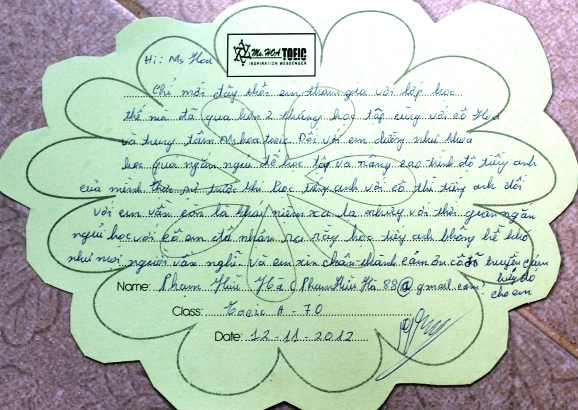 Ms. HOA TOEIC
INSPIRATION MESSENGER
Hi: Ms Hoa
Chỉ mới đây thôi em tham gia với lớp học
thế mà đã qua hơn 2 tháng học tập cùng với cô Hoa
và trung tâm Ms hoa toeic. Đối với em dường như khóa
học quá ngắn ngủi để học tập và nâng cao trình độ tiếng anh
của mình thật sự trước khi học tiếng anh với cô thì tiếng anh đối
với em vẫn còn là khái niệm xa lạ nhưng với thời gian ngắn
ngủi học với cô em đã nhận ra rằng học tiếng anh không hề khó
như mọi người vẫn nghĩ và em xin chân thành cảm ơn cô đã truyền cảm
cho em
Name: Phạm Hữu Hà (PhamHuuHa88@gmail.com)
Class: Toeic A - 70
Date: 12-11-2012